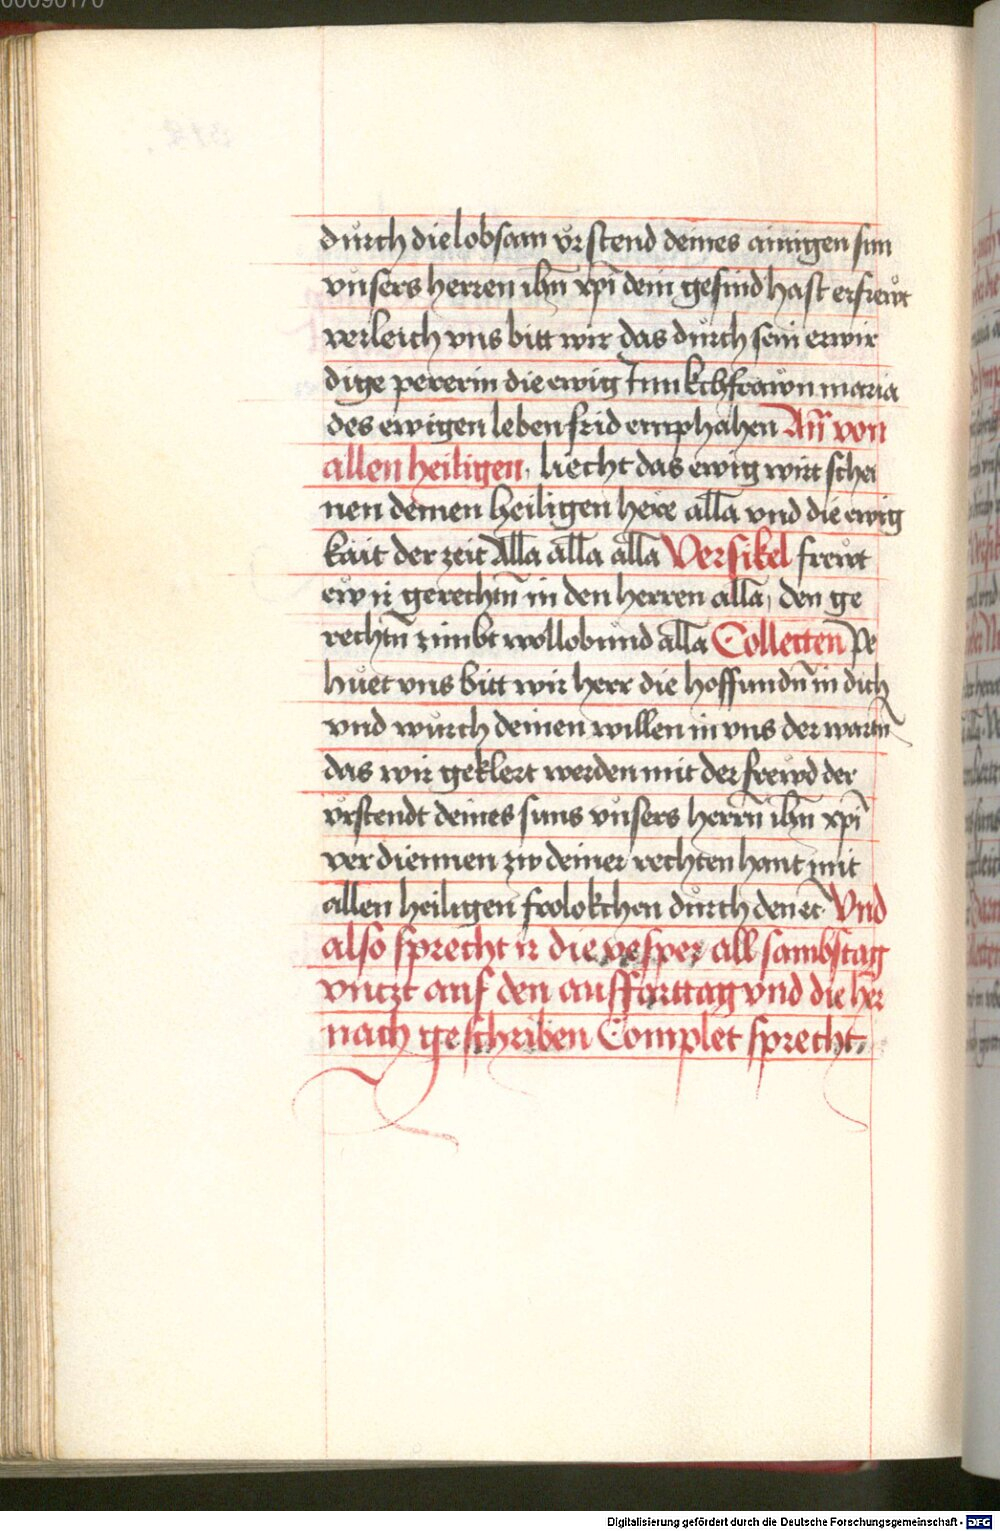 00090170
durch die lobsam vrstend deines ainigen sun
vnsers herren ihũ xpi dein gesind hast erfrewt
verleich vns bitt wir das durch sein erwir
dige pererin die ewig Junkchfrawn maria
des ewigen leben frid emphahen Añ von
allen heiligen, liecht das ewig wirt schei
nen deinen heiligen here alla vnd die ewig
kait der zeit Alla alla alla Versikel frewt
ew ir gerechtñ in den herren alla, den ge
rechtñ zimbt wollobund alla Collecten Pe
huet vns bitt wir herr die hoffundñ in dich
vnd wurch deinen willen in vns der wartñ
das wir geklert werden mit der frewd der
vrstendt deines suns vnsers herrñ ihũ xpi
verdiennen zw deiner rechten hant mit
allen heiligen frolokchen durch den ec. Vnd
also sprecht ir die vesper all sambstag
vnczt auf den auffarttag vnd die her
nach geschriben Complet sprecht
Digitalisierung gefördert durch die Deutsche Forschungsgemeinschaft - DFG